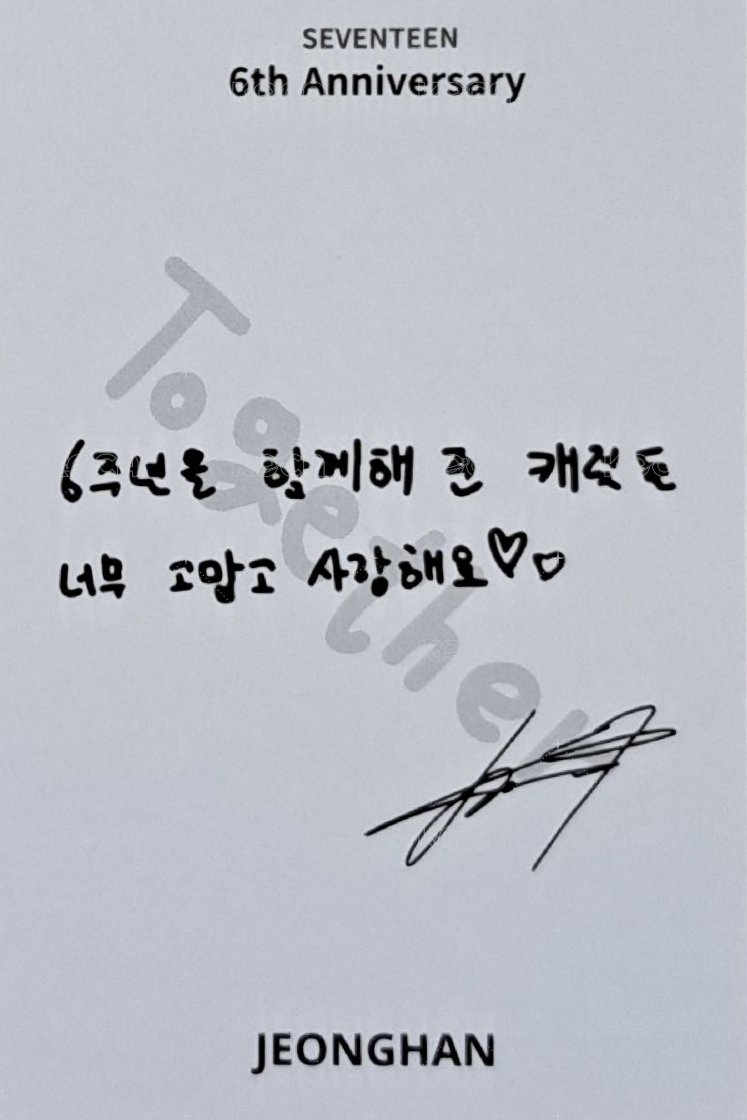 SEVENTEEN
6th Anniversary
Together
6주년을 함께해 준 캐럿들
너무 고맙고 사랑해요♡♡
JEONGHAN